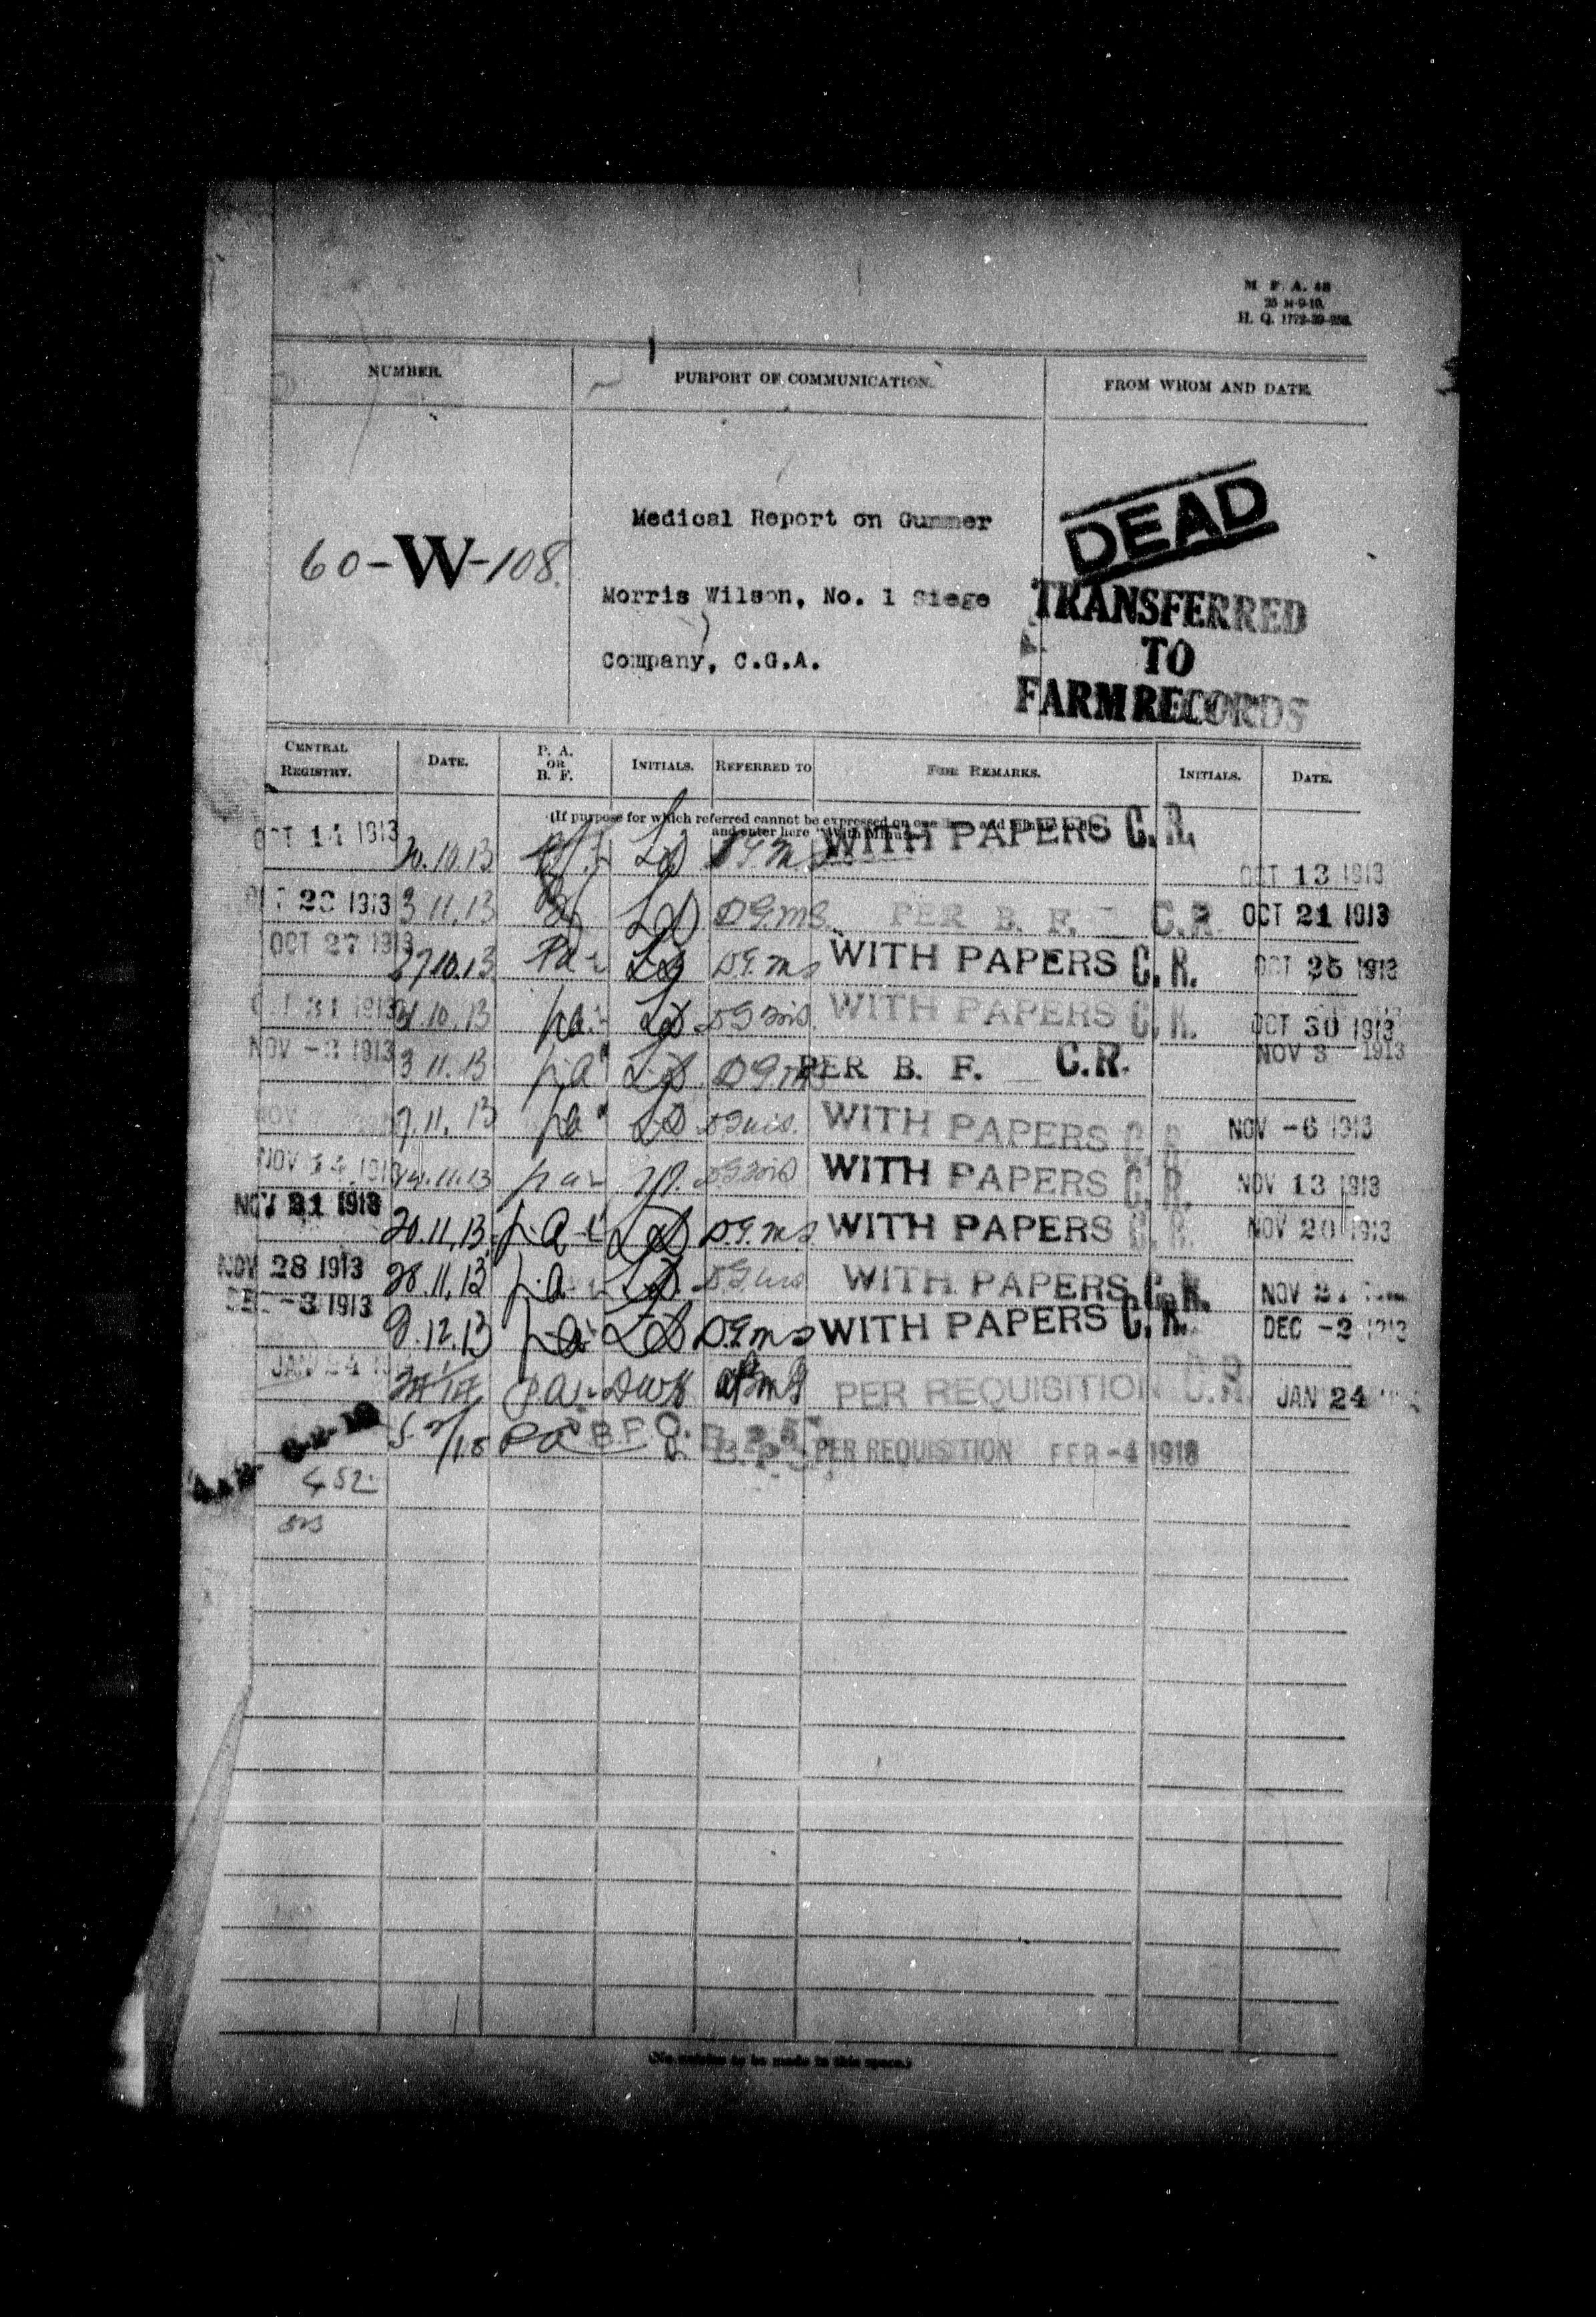 M. F. A. 48
25 M-9-10.
H. Q. 1772-39-256.
NUMBER.
PURPORT OF COMMUNICATION.
FROM WHOM AND DATE.
60-W-108.
Medical Report on Gunner
Morris Wilson, No. 1 Siege
Company, C.G.A.
DEAD
TRANSFERRED
TO
FARM RECORDS
CENTRAL REGISTRY.
DATE.
P. A. OR B. F.
INITIALS.
REFERRED TO
FOR REMARKS.
INITIALS.
DATE.
(If purpose for which referred cannot be expressed on one line, add
and enter here
OCT 14 1913 20.10.13 D.G.M.S. WITH PAPERS C.R. OCT 13 1913
1913 3.11.13 D.G.M.S. PER B. F. C.R. OCT 21 1913
OCT 27 1913 27.10.13 Pa D.G.M.S WITH PAPERS C.R. OCT 25 1913
31 1913 31.10.13 pa D.G.M.S. WITH PAPERS C.R. OCT 30 1913
NOV -3 1913 3.11.13 p.a D.G.M.S PER B. F. C.R. NOV 3 1913
NOV 7.11.13 pa D.G.M.S. WITH PAPERS C.R. NOV -6 1913
NOV 14 1913 14.11.13 pa D.G.M.S WITH PAPERS C.R. NOV 13 1913
NOV 21 1913 20.11.13 p.a D.G.M.S WITH PAPERS C.R. NOV 20 1913
NOV 28 1913 28.11.13 p.a D.G.M.S WITH PAPERS C.R. NOV
DEC -3 1913 p.a D.G.M.S WITH PAPERS C.R. DEC -2 1913
JAN 24 P.A. PER REQUISITION C.R. JAN 24
5-2/18 Pa B.F.O. PER REQUISITION FEB -4 1918
452
(No entries to be made in this space.)